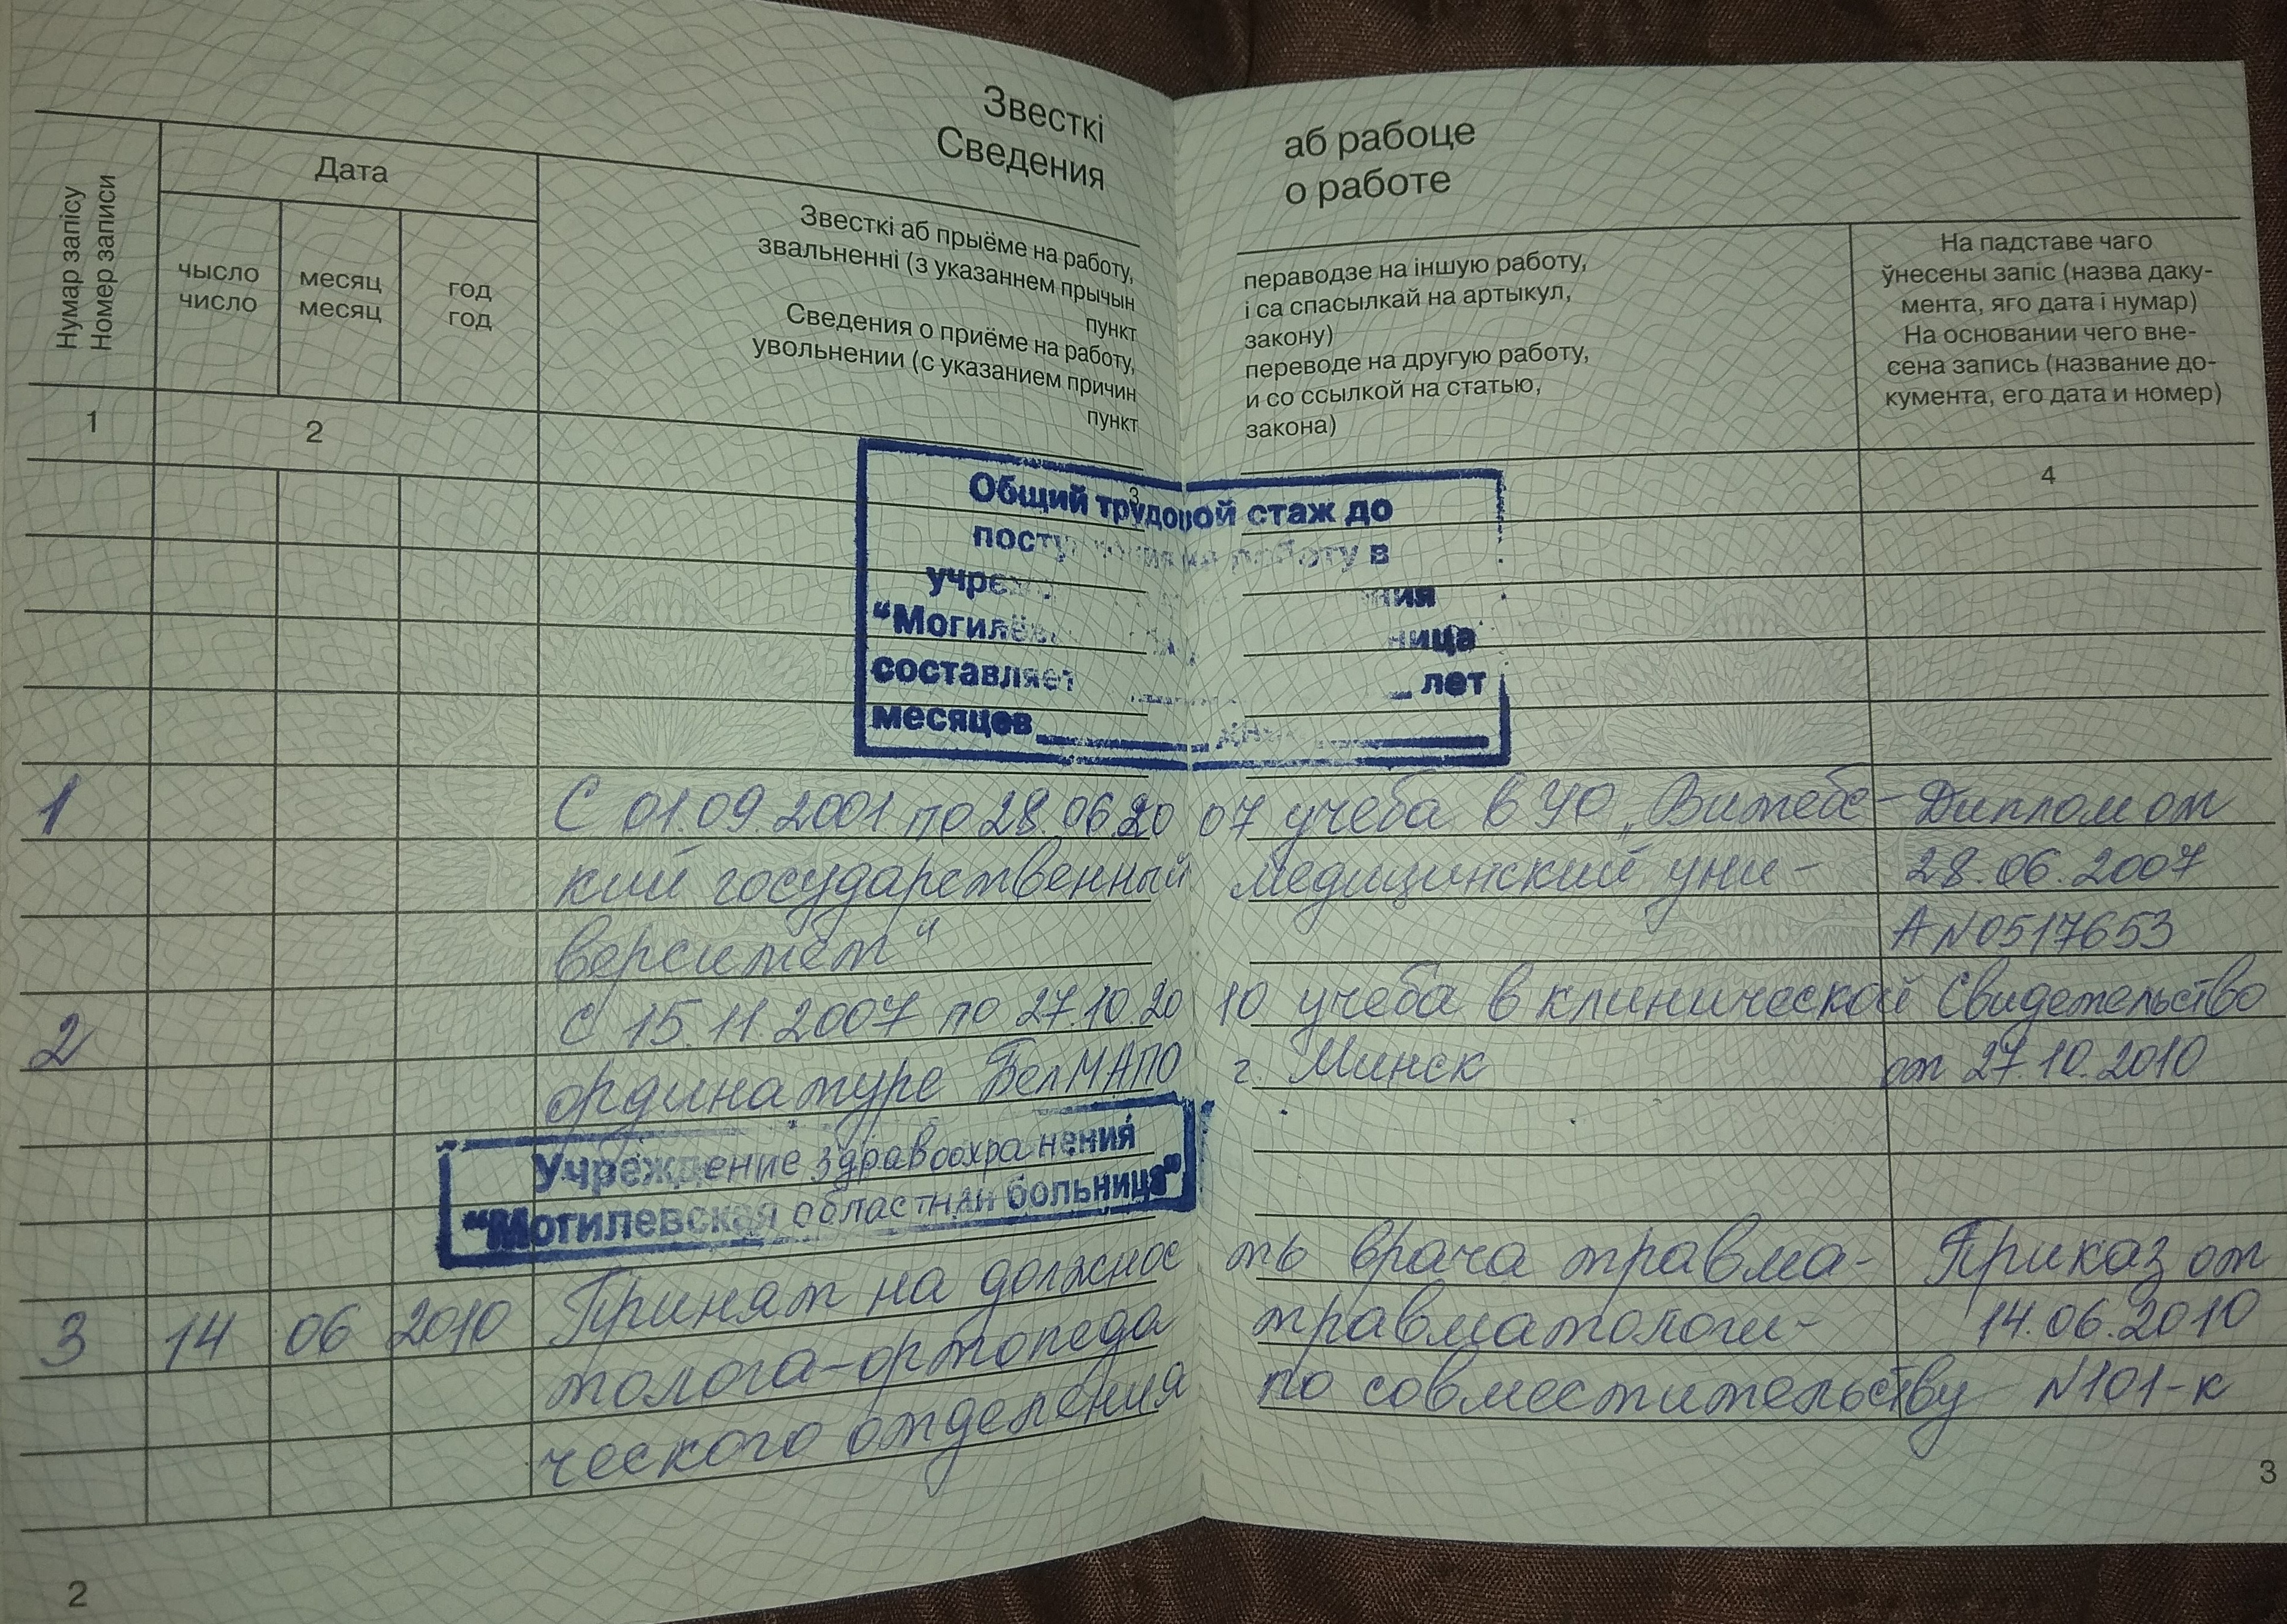 Звесткі аб рабоце
Сведения о работе
Нумар запісу
Номер записи
Дата
чысло месяц год
число месяц год
Звесткі аб прыёме на работу, пераводзе на іншую работу,
звальненні (з указаннем прычын і са спасылкай на артыкул,
пункт закону)
Сведения о приёме на работу, переводе на другую работу,
увольнении (с указанием причин и со ссылкой на статью,
пункт закона)
На падставе чаго
ўнесены запіс (назва даку-
мента, яго дата і нумар)
На основании чего вне-
сена запись (название до-
кумента, его дата и номер)
1 2 3 4
Общий трудовой стаж до
поступления на работу в
"Могилёвс
составляет лет
месяцев дней
1 С 01.09.2001 по 28.06.20 07 учеба в УО „Витебс- Диплом от
кий государственный медицинский уни- 28.06.2007
верситет“ А №0517653
2 С 15.11.2007 по 27.10.20 10 учеба в клинической Свидетельство
ординатуре БелМАПО г. Минск от 27.10.2010
Учреждение здравоохранения
"Могилевская областная больница"
3 14 06 2010 Принят на должнос ть врача травма- Приказ от
толога-ортопеда травматологи- 14.06.2010
ческого отделения по совместительству №101-к
2
3